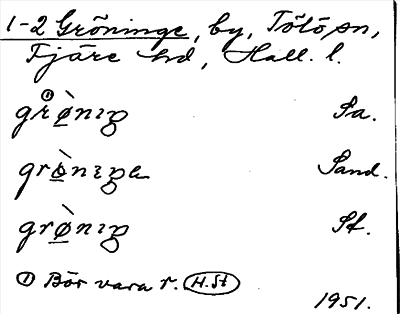 1-2 Gröninge, by, Tölö sn,
Fjäre hd, Hall. l.
gr①ø̀nıŋ Sa.
grø̀nıŋə Sand.
grø̀nıŋ Sf.
① Bör vara r. H. St
1951.